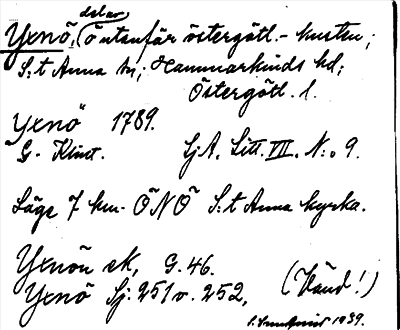 delar
Yxnö, (ö utanför östergötl.- kusten;
S:t Anna sn; Hammarkinds hd;
Östergötl. l.
Yxnö 1789.
G. Klint. SjA. Litt. VII. N:o 9.
Läge 7 km. ÖNÖ S:t Anna kyrka.
Yxnön ek, G. 46.
Yxnö Sj: 251 v. 252, (Vänd!)
1939.